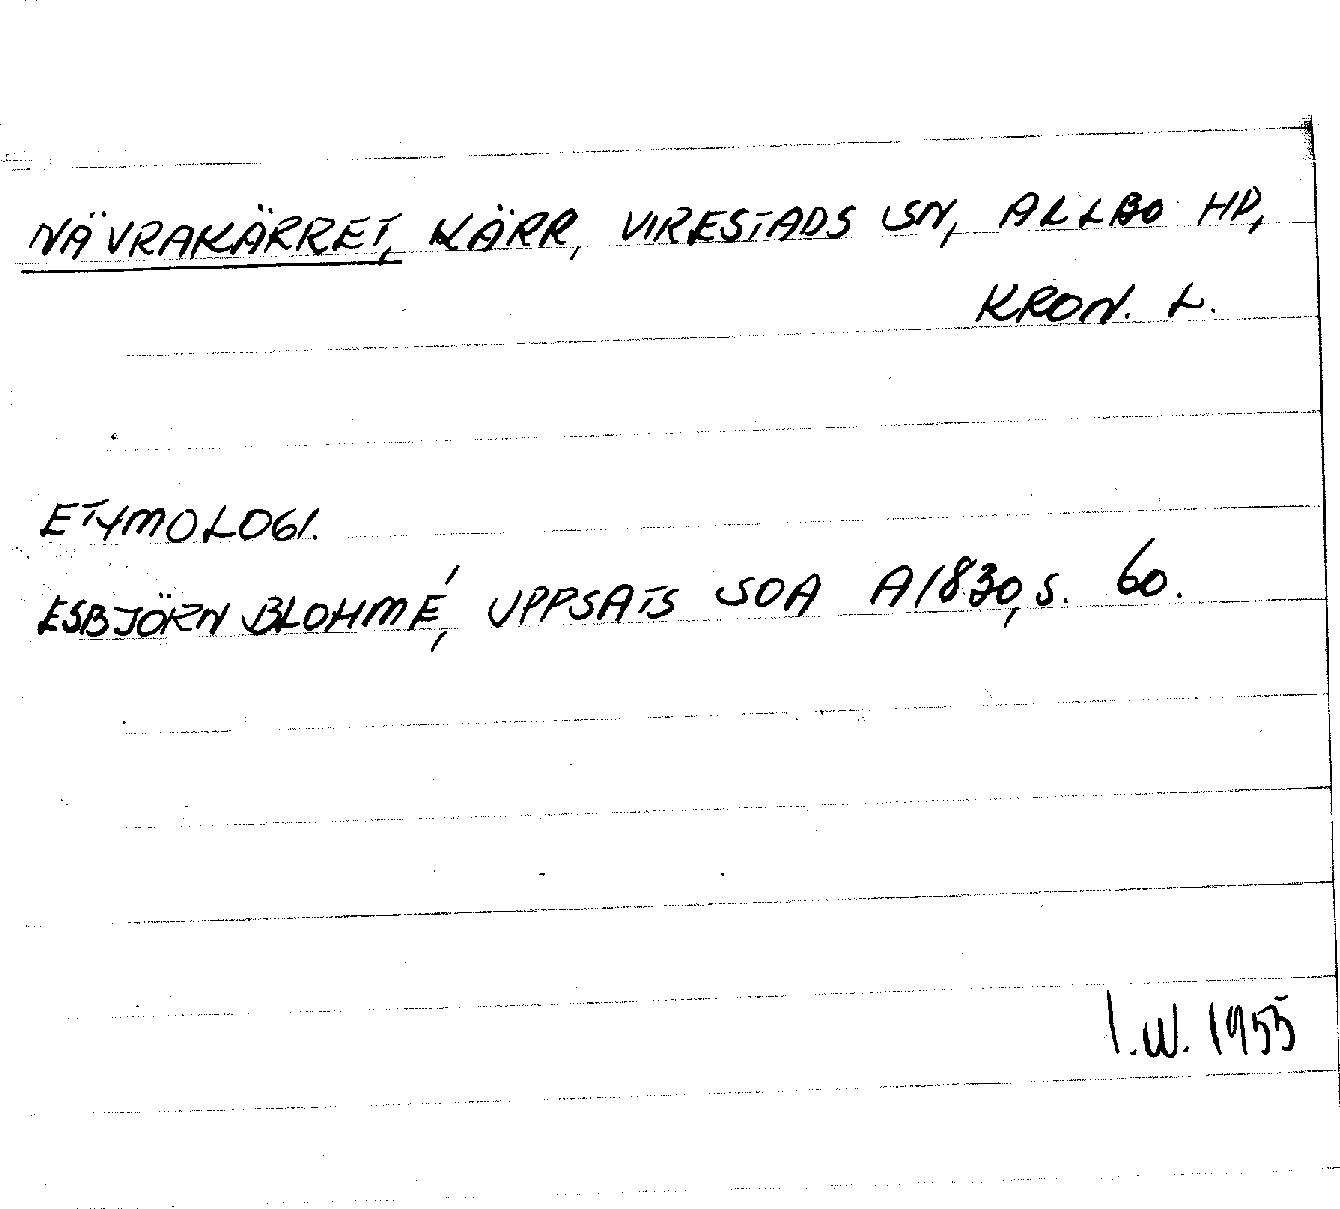 NÄVRAKÄRRET, KÄRR, VIRESTADS SN, ALLBO HD,
KRON. L.
ETYMOLOGI.
ESBJÖRN BLOHMÉ, UPPSATS SOA A1830, S. 60.
I.W. 1955